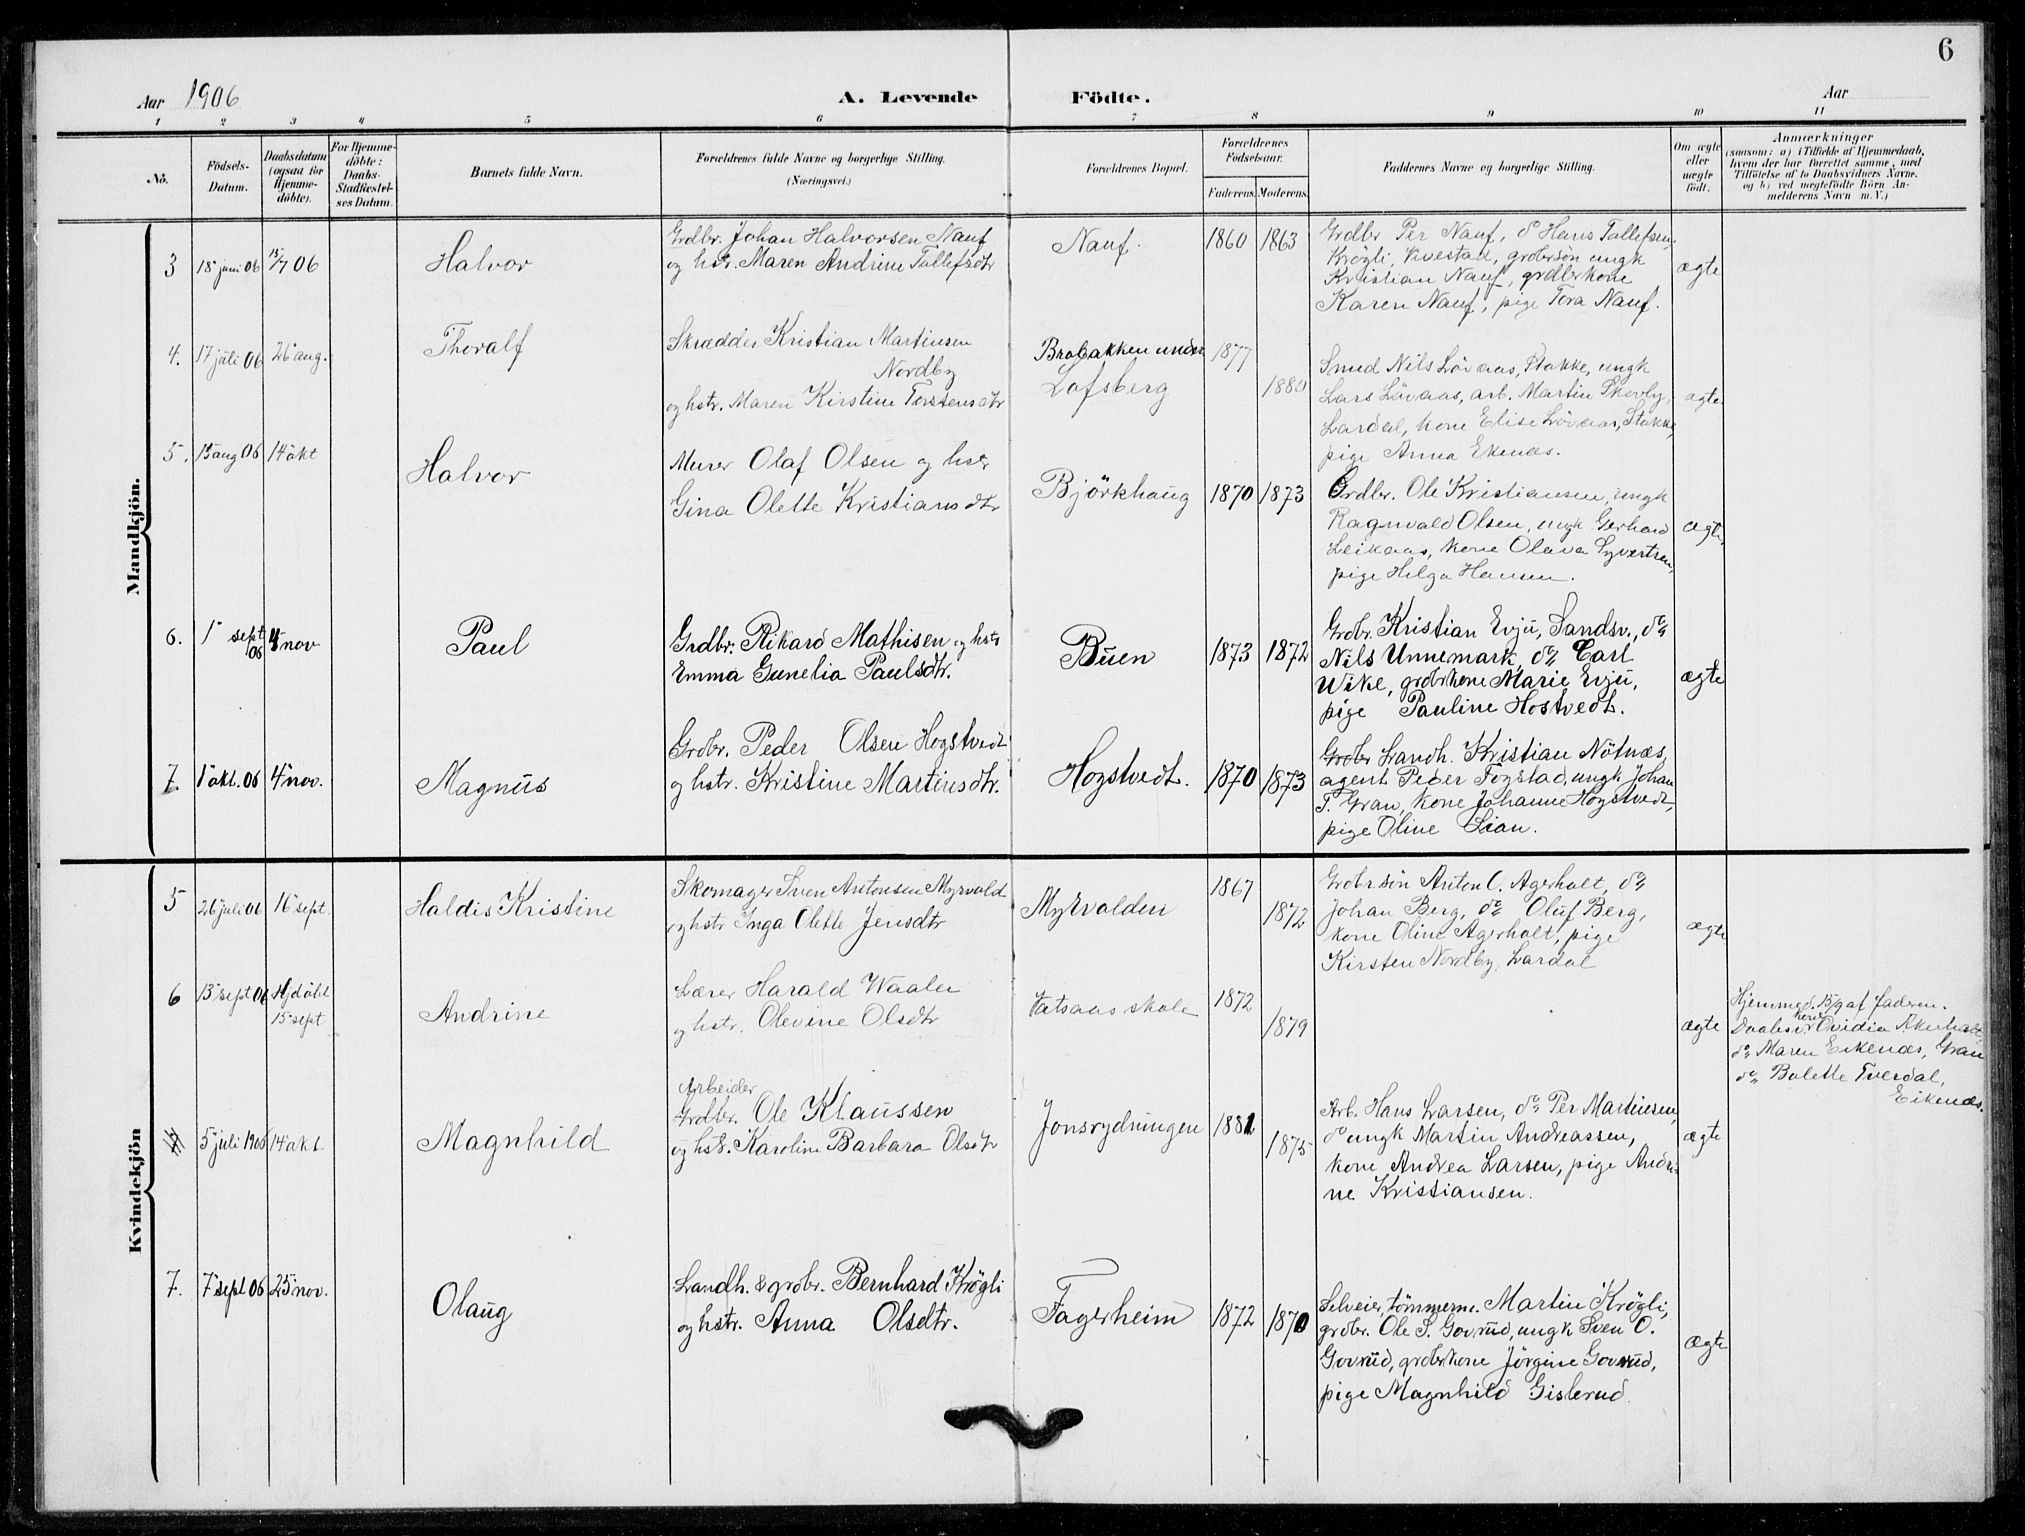 6
Aar 1906
A. Levende Födte.
Aar
1 2 3 4 5 6 7 8 9 10 11
No.
Födsels-
Datum.
Daabsdatum
(ogsaa for
Hjemme-
döbte).
For Hjemme-
döbte:
Daabs-
Stadfæstel-
ses Datum.
Barnets fulde Navn.
Forældrenes fulde Navne og borgerlige Stilling.
(Næringsvei.)
Forældrenes Bopæl.
Forældrenes
Födselsaar.
Faderens. Moderens.
Faddernes Navne og borgerlige Stilling.
Om ægte
eller
uægte
födt.
Anmærkninger
(saasom: a) i Tilfælde af Hjemmedaab,
hvem der har forrettet samme, med
Tilföielse af to Daabsvidners Navne.
og b) ved uægtefödte Börn An-
melderens Navn m. V.)
Mandkjön.
3
18 juni 06
15/7 06
Halvor
Grdbr. Johan Halvorsen Nauf
og hstr. Maren Andrine Tollefsdtr
Nauf.
1860
1863
Grdbr Per Nauf, do Hans Tollefsen
Krögli, Kvestad, grdbrsön ungk
Kristian Nauf, grdbrkone
Karen Nauf, pige Tora Nauf.
ægte
4.
17 juli 06
26 aug.
Thoralf
Skrædder Kristian Martinsen
Nordby
og hstr. Maren Kirstine Torstensdtr
Brobakken under
Lofsberg
1877
1880
Smed Nils Lövaas, Stokke, ungk
Lars Lövaas, arb. Martin Skovly,
Lardal, kone Elise Lövaas, Stokke,
pige Anna Ekenæs.
ægte
5.
15 aug 06
14 okt
Halvor
Murer Olaf Olsen og hstr
Gina Olette Kristiansdtr
Björkhaug
1870
1873
Grdbr. Ole Kristiansen, ungk
Ragnvald Olsen, ungk Gerhard
Leikaas, kone Olava Syvertsen,
pige Helga Hansen.
ægte
6.
1 sept
06
4 nov
Paul
Grdbr. Rikard Mathisen og hstr
Emma Gunelia Paulsdtr.
Buen
1873
1872
Grdbr. Kristian Evju, Sandsv., do
Nils Unnemark, do Carl
Wike, grdbrkone Marie Evju,
pige Pauline Hostvedt.
ægte
7.
1 okt. 06
4 nov.
Magnus
Grdbr. Peder Olsen Hogstvedt
og hstr. Kristine Martinsdtr.
Hogstvedt.
1870
1873
Grdbr Landh. Kristian Nötnæs,
agent Peder Fogstad, ungk Johan
T. Gran, kone Johanne Hogstvedt,
pige Oline Lian.
Kvindekjön
5
26 juli 06
16 sept.
Haldis Kristine
Skomager Sven Antonsen Myrvold
og hstr Inga Olette Jensdtr
Myrvolden
1867
1872
Grdbrsön Anton C. Agerholt, do
Johan Berg, do Oluf Berg,
kone Oline Agerholt, pige
Kirsten Nordby, Lardal
ægte
6
13 sept 06
Hjdöbt
15 sept
Andrine
Lærer Harald Waaler
og hstr. Olevine Olsdtr
Vatsaas skole
1872
1879
ægte
Hjemmed. 15/9 af faderen.
Daabsv. kone Ovidia Akerholt,
do Maren Eikenæs, Gran
do Bolette Tverdal,
Eikenæs.
5 juli 1906
14 okt.
Magnhild
Arbeider
Grdbr. Ole Klaussen
og hstr. Karoline Barbara Olsdtr
Jonsrydningen
1881
1875
Arb. Hans Larsen, do Per Martinsen,
do ungk Martin Andreassen,
kone Andrea Larsen, pige Andri-
ne Kristiansen.
ægte
7.
7 sept 06
25 nov.
Olaug
Landh. & grdbr. Bernhard Krögli
og hstr. Anna Olsdtr.
Fagerheim
1872
1870
Selveier, tömmerm. Martin Krögli,
grdbr. Ole S. Govrud, ungk Sven O.
Govrud, grdbrkone Jörgine Govrud,
pige Magnhild Gislerud.
ægte